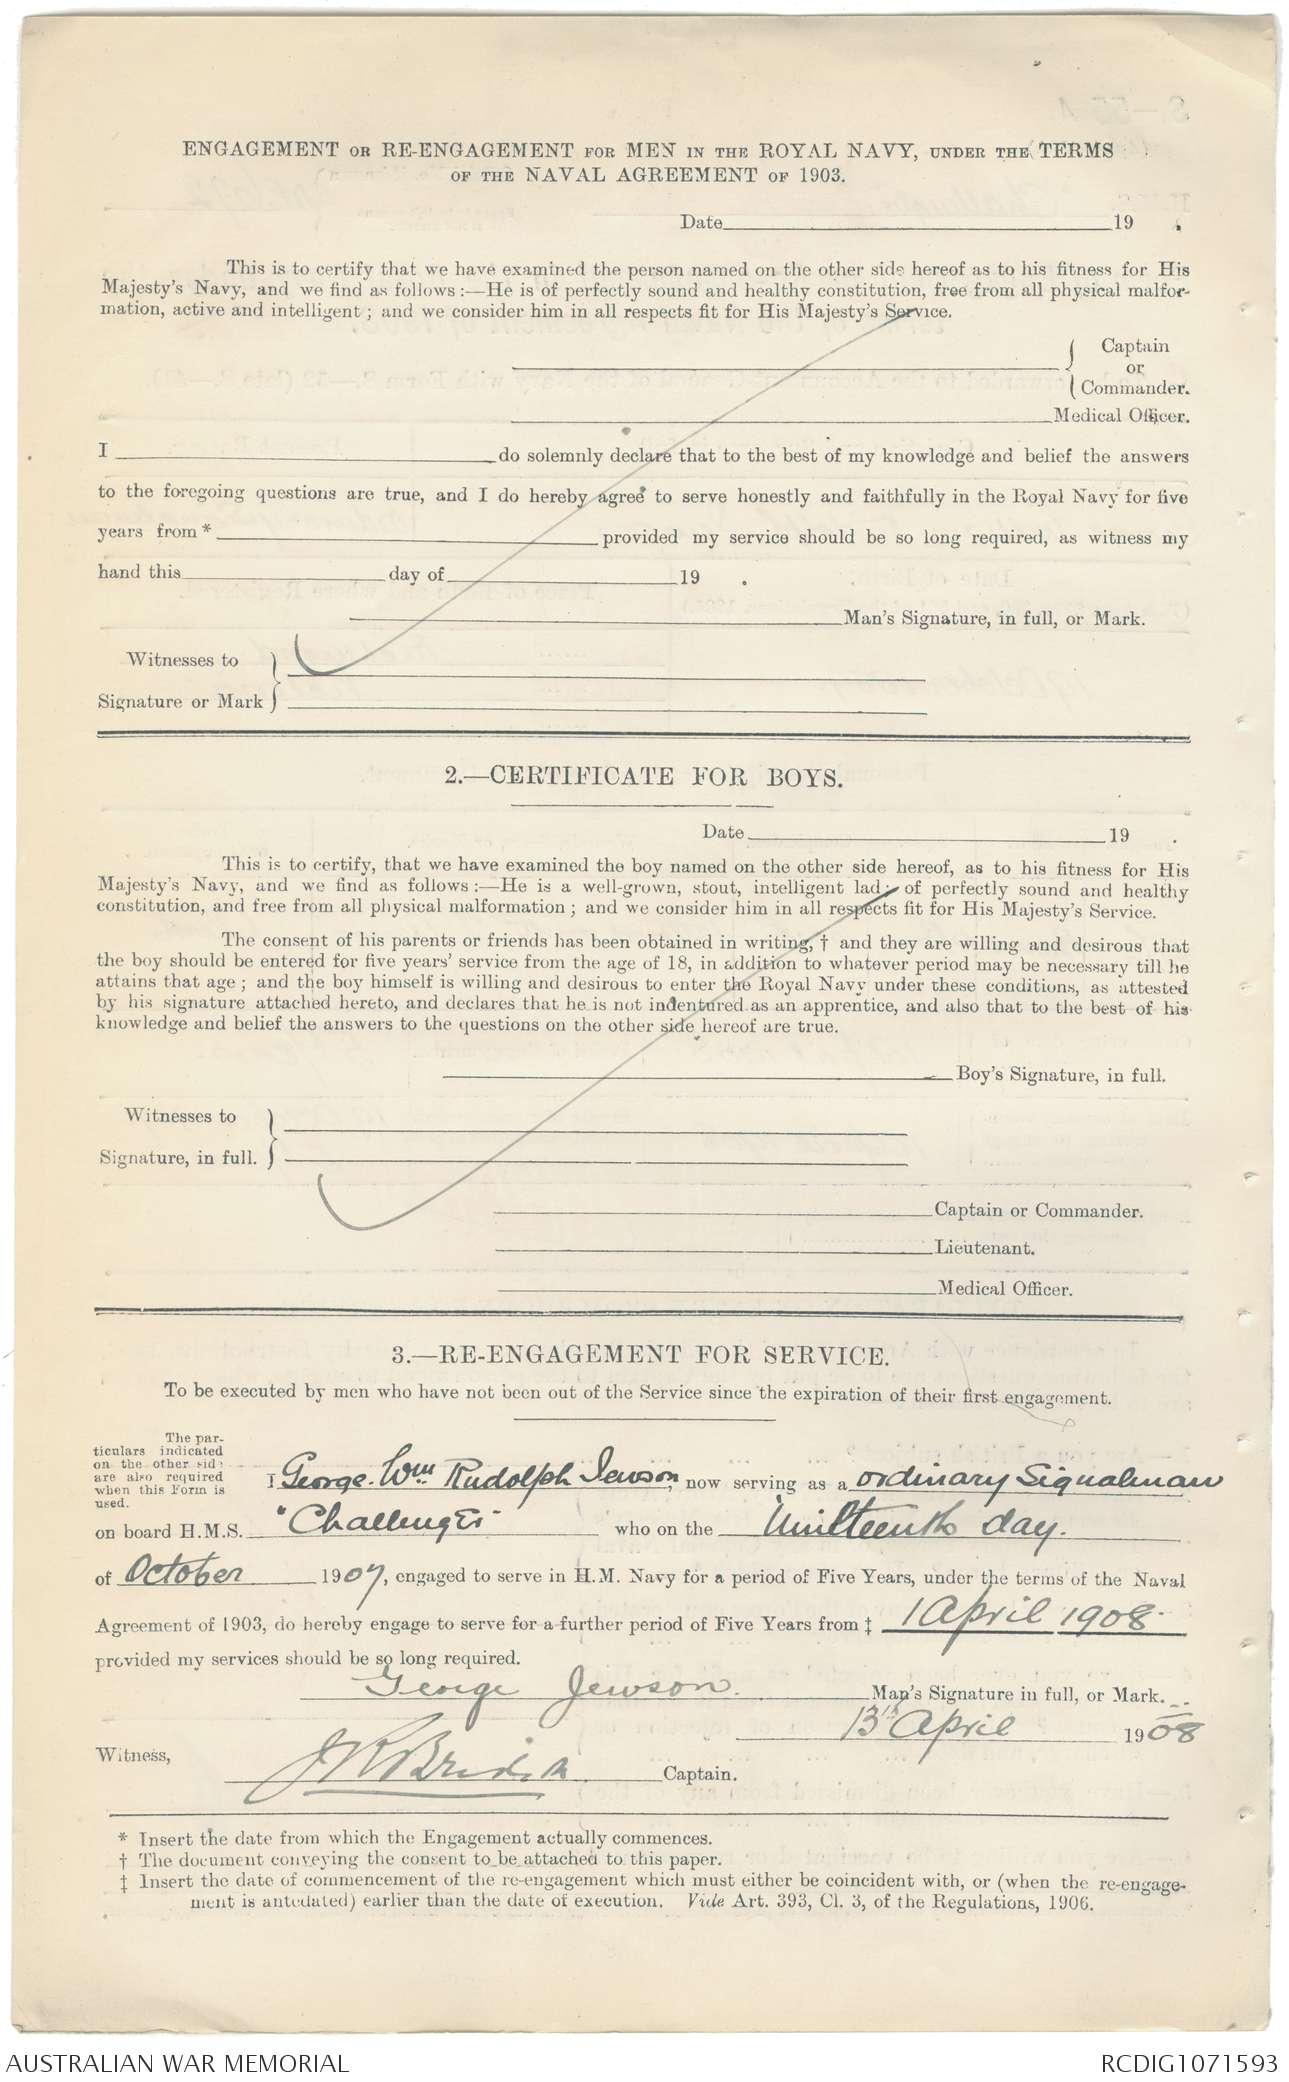 ENGAGEMENT OR RE-ENGAGEMENT FOR MEN IN THE ROYAL NAVY, UNDER THE TERMS
OF THE NAVAL AGREEMENT OF 1903.
Date 19 .
This is to certify that we have examined the person named on the other side hereof as to his fitness for His
Majesty's Navy, and we find as follows:—He is of perfectly sound and healthy constitution, free from all physical malfor-
mation, active and intelligent; and we consider him in all respects fit for His Majesty's Service.
Captain
or
Commander.
Medical Officer.
I do solemnly declare that to the best of my knowledge and belief the answers
to the foregoing questions are true, and I do hereby agree to serve honestly and faithfully in the Royal Navy for five
years from* provided my service should be so long required, as witness my
hand this day of 19 .
Man's Signature, in full, or Mark.
Witnesses to
Signature or Mark
2.—CERTIFICATE FOR BOYS.
Date 19 .
This is to certify, that we have examined the boy named on the other side hereof, as to his fitness for His
Majesty's Navy, and we find as follows:—He is a well-grown, stout, intelligent lad; of perfectly sound and healthy
constitution, and free from all physical malformation; and we consider him in all respects fit for His Majesty's Service.
The consent of his parents or friends has been obtained in writing,† and they are willing and desirous that
the boy should be entered for five years' service from the age of 18, in addition to whatever period may be necessary till he
attains that age; and the boy himself is willing and desirous to enter the Royal Navy under these conditions, as attested
by his signature attached hereto, and declares that he is not indentured as an apprentice, and also that to the best of his
knowledge and belief the answers to the questions on the other side hereof are true.
Boy's Signature, in full.
Witnesses to
Signature, in full.
Captain or Commander.
Lieutenant.
Medical Officer.
3.—RE-ENGAGEMENT FOR SERVICE.
To be executed by men who have not been out of the Service since the expiration of their first engagement.
The par-
ticulars indicated
on the other side
are also required
when this Form is
used.
I George Wm Rudolph Jewson, now serving as a ordinary Signalman
on board H.M.S. "Challenger" who on the Nineteenth day.
of October 1907, engaged to serve in H.M. Navy for a period of Five Years, under the terms of the Naval
Agreement of 1903, do hereby engage to serve for a further period of Five Years from ‡ 1 April 1908.
provided my services should be so long required.
George Jewson. Man's Signature in full, or Mark.
13th April 1908
Witness, Captain.
* Insert the date from which the Engagement actually commences.
† The document conveying the consent to be attached to this paper.
‡ Insert the date of commencement of the re-engagement which must either be coincident with, or (when the re-engage-
ment is antedated) earlier than the date of execution. Vide Art. 393, Cl. 3, of the Regulations, 1906.
AUSTRALIAN WAR MEMORIAL
RCDIG1071593